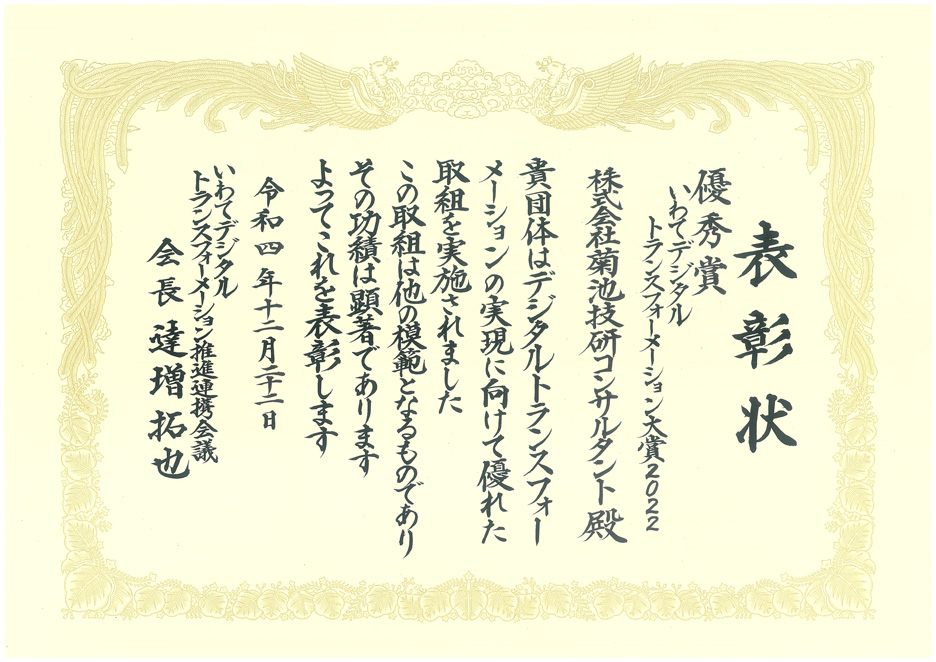 表彰状
優秀賞
いわてデジタル
トランスフォーメーション大賞2022
株式会社菊池技研コンサルタント殿
貴団体はデジタルトランスフォー
メーションの実現に向けて優れた
取組を実施されました
この取組は他の模範となるものであり
その功績は顕著であります
よってこれを表彰します
令和四年十二月二十二日
いわてデジタル
トランスフォーメーション推進連携会議
会長 達増拓也